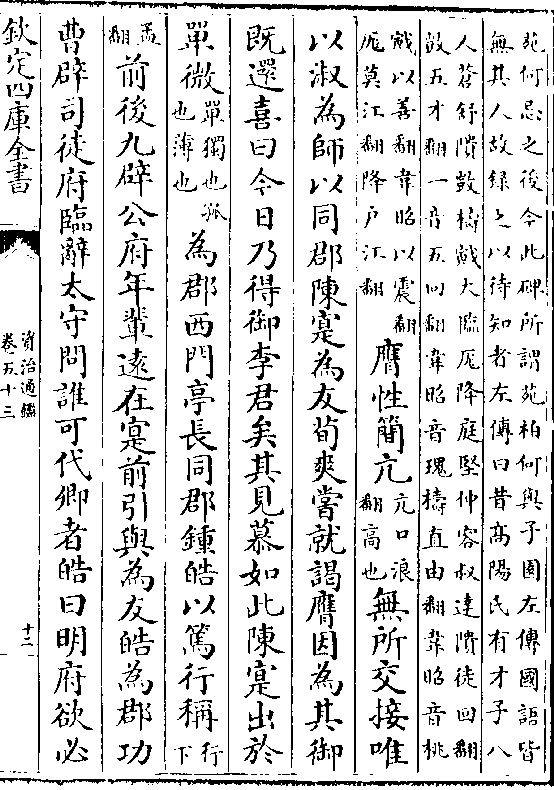 苑何忌之後今此碑所謂苑柏何與子園左傳國語皆
無其人故録之以待知者左傳曰昔髙陽氏有才子八
人蒼舒隤敳檮戭大臨厖降庭堅仲容叔達隤徒回翻
敳五才翻一音五回翻韋昭音瑰檮直由翻韋昭音桃
戭以善翻韋昭以震翻
厖莫江翻降户江翻
膺性簡亢亢口浪翻髙也無所交接唯
以淑為師以同郡陳寔為友荀爽嘗就謁膺因為其御
既還喜曰今日乃得御李君矣其見慕如此陳寔出於
單微單獨也孤也薄也為郡西門亭長同郡鍾皓以篤行稱行下
孟翻前後九辟公府年輩逺在寔前引與為友皓為郡功
曹辟司徒府臨辭太守問誰可代卿者皓曰明府欲必
欽定四庫全書
資治通鑑
卷五十三
十二